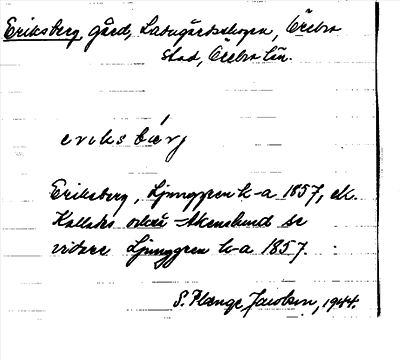 Eriksberg, gård, Ladugårdsskogen, Örebro
stad, Örebro län.
eriksbärj
Eriksberg, Ljunggren k-a 1857, ek.
Kallades också Akenslund se
vidare Ljunggren k-a 1857.
S. Plænge Jacobson, 1944.